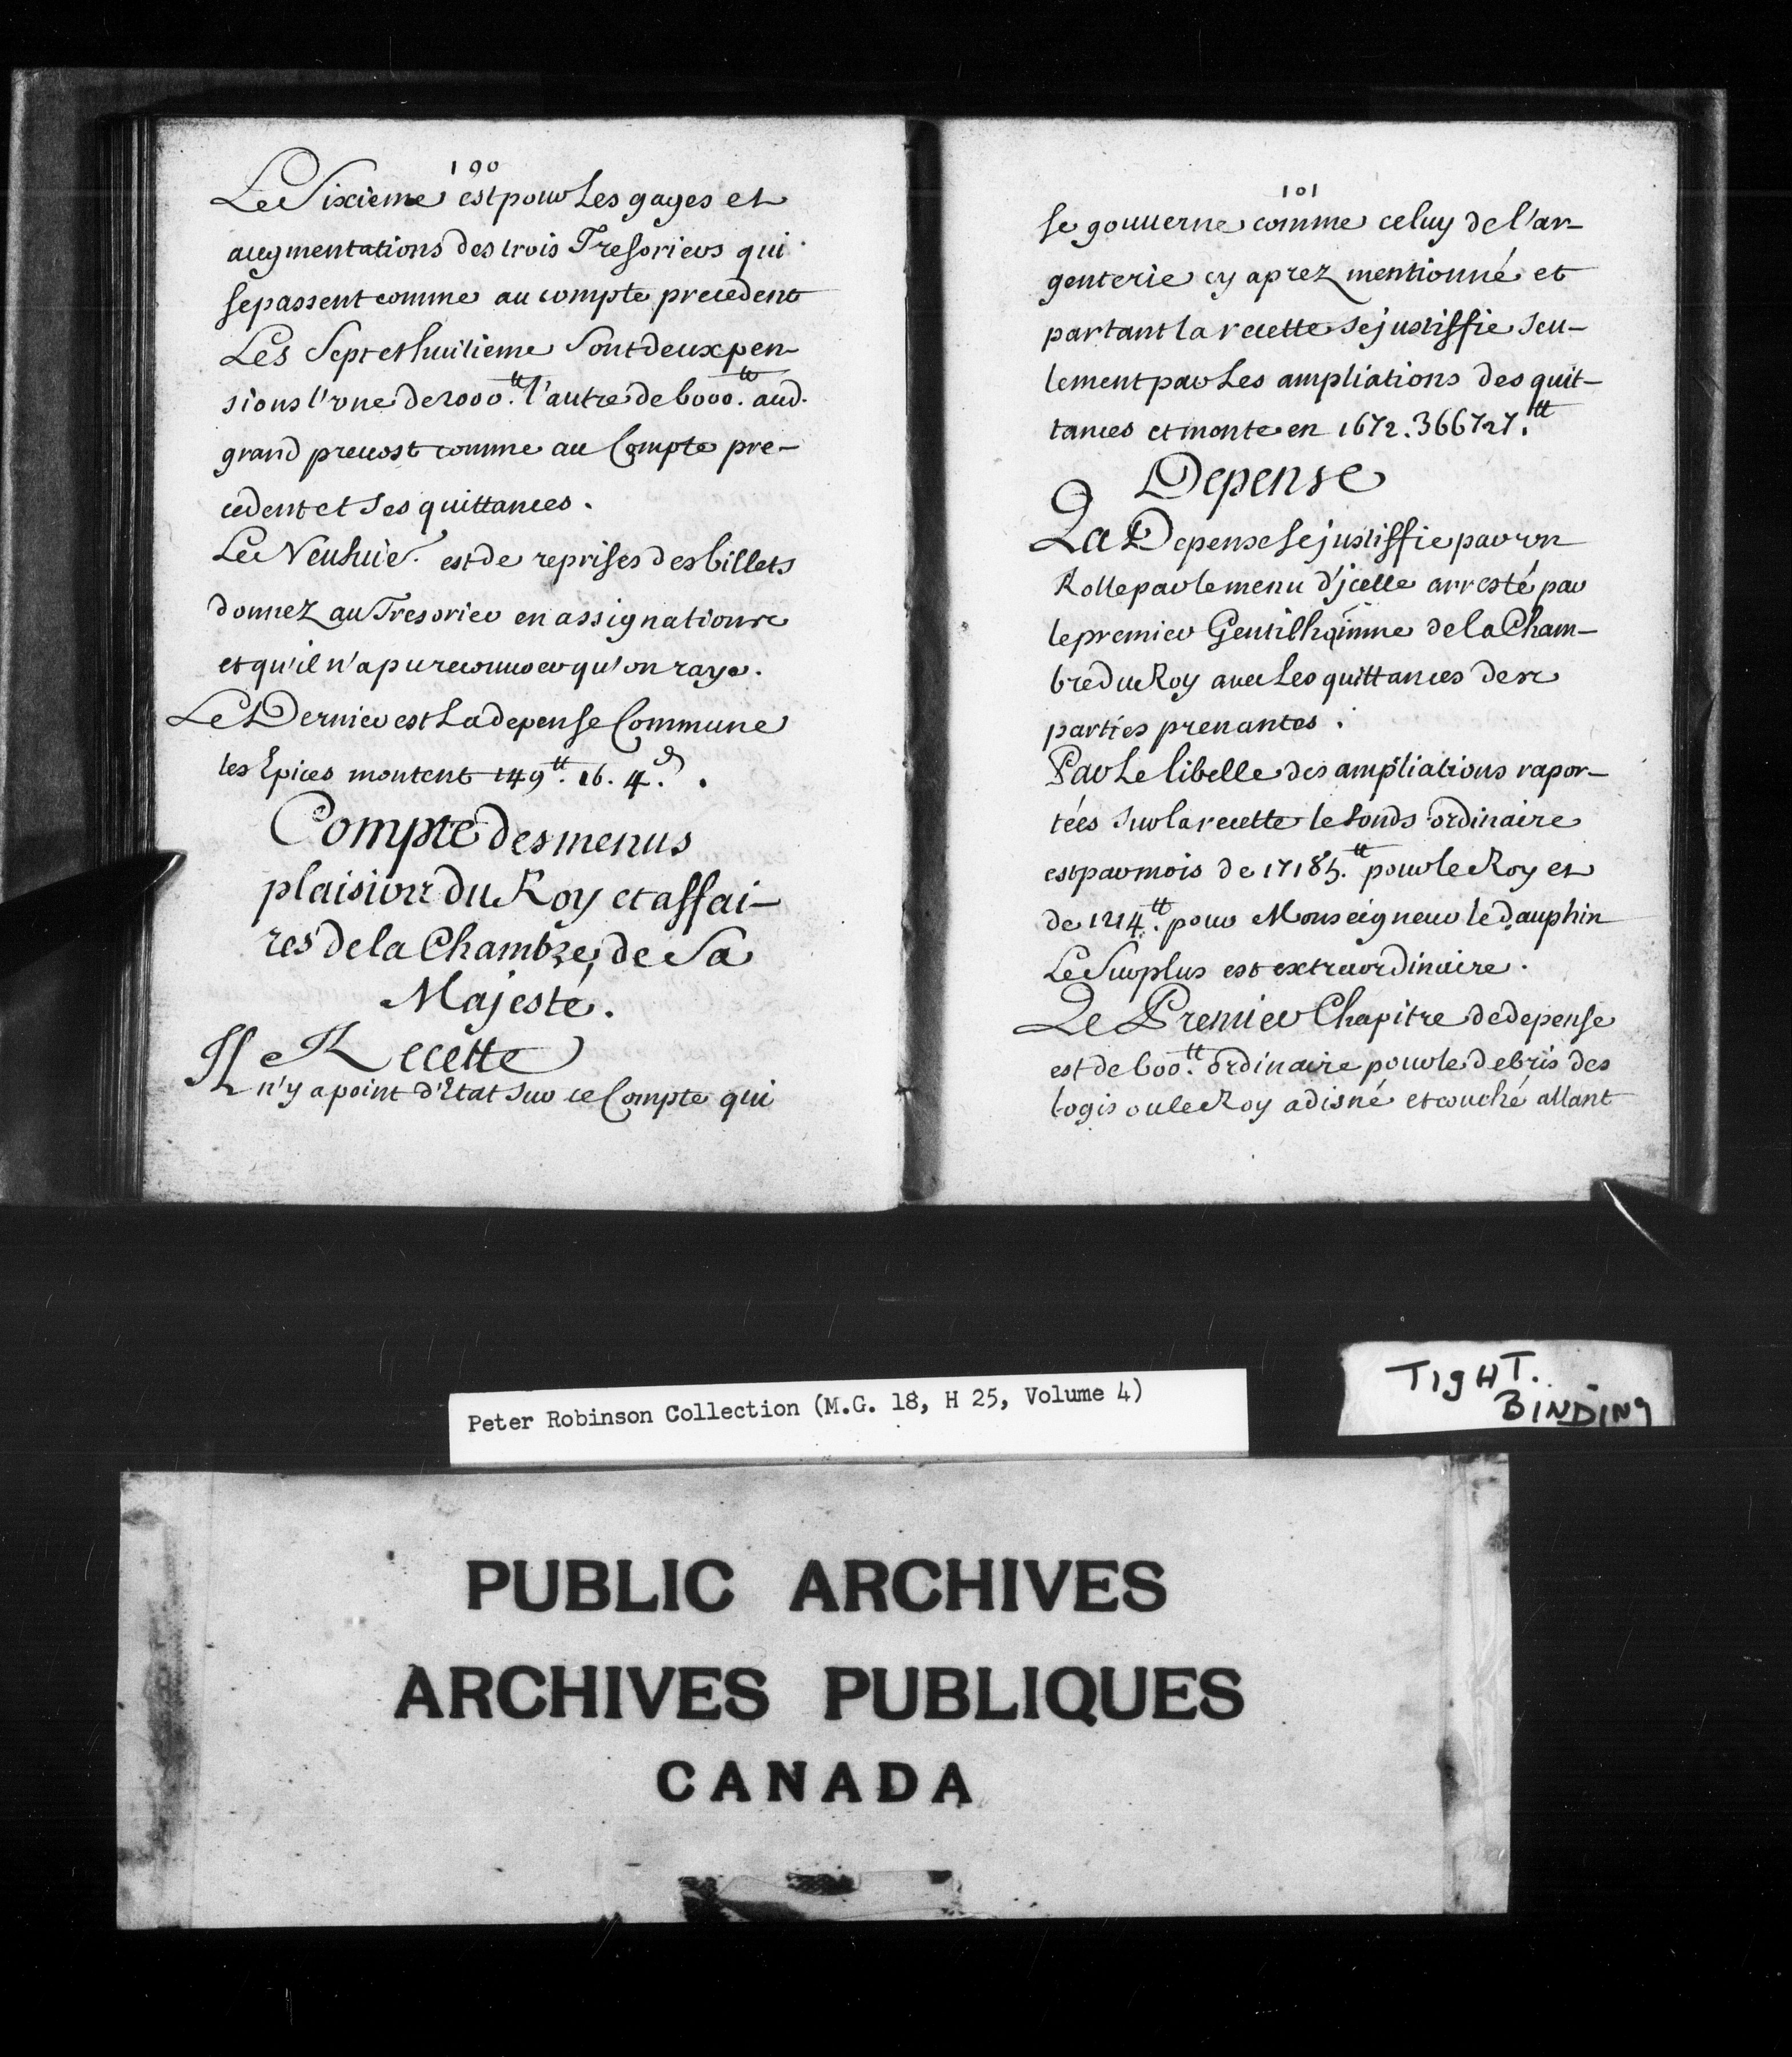 190
Le Sixieme est pour Les gages et
augmentations des trois Tresoriers qui
se passent comme au compte precedent
Les Sept et huitieme Sont deux pen-
sions l'vne de 2000.tt l'autre de 6000.tt aud.
grand preuost comme au Compte pre-
cedent et Ses quittances.
Le Neufuie. est de reprises des billets
donnez au Tresorier en assignations
et qu'il n'a pu receuoir qu'on raye.
Le Dernier est La depense Commune
les Epices montent 149tt. 16. 4.d.
Compte des menus
plaisirs du Roy et affai-
res de la Chambre, de Sa
Majesté.
Recette
Il n'y a point d'Etat Sur ce Compte qui
101
se gouuerne comme celuy de l'ar-
genterie cy aprez mentionné et
partant la recette se justiffie seu-
lement par Les ampliations des quit-
tances et monte en 1672. 366727.tt
Depense
La Depense se justiffie par vn
Rolle par le menu d'jcelle arresté par
le premier Gentilhomme de la Cham-
bre du Roy auec Les quittances des
parties prenantes.
Par Le libelle des ampliations rapor-
tées sur la recette le fonds ordinaire
est par mois de 17185.tt pour le Roy et
de 1214tt. pour Monseigneur le Dauphin
Le Surplus est extraordinaire.
Le Premier Chapitre de depense
est de 600.tt ordinaire pour le debris des
logis ou le Roy a disné et couché allant
Peter Robinson Collection (M.G. 18, H 25, Volume 4)
TIGHT.
BINDING
PUBLIC ARCHIVES
ARCHIVES PUBLIQUES
CANADA